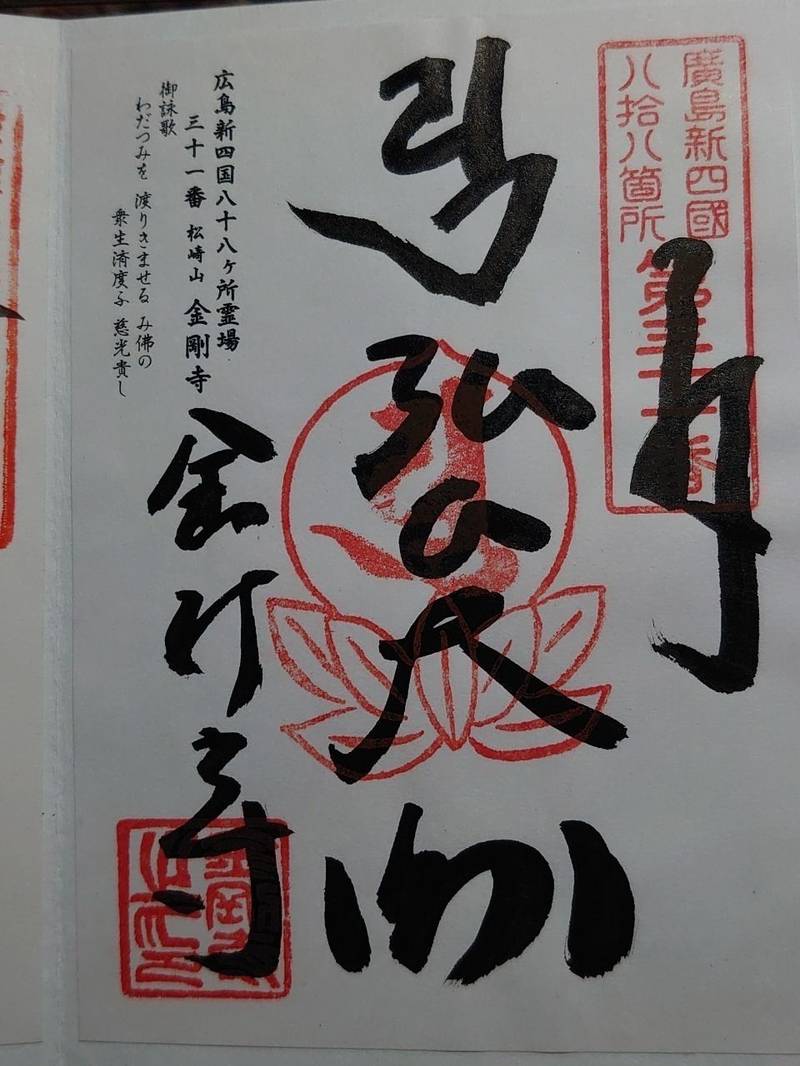 廣島新四國
八拾八箇所
第三十一番
弘法大師
広島新四国八十八ヶ所霊場
三十一番 松崎山 金剛寺
御詠歌
わだつみを 渡りきませる み佛の
衆生済度 慈光貴し
金剛寺